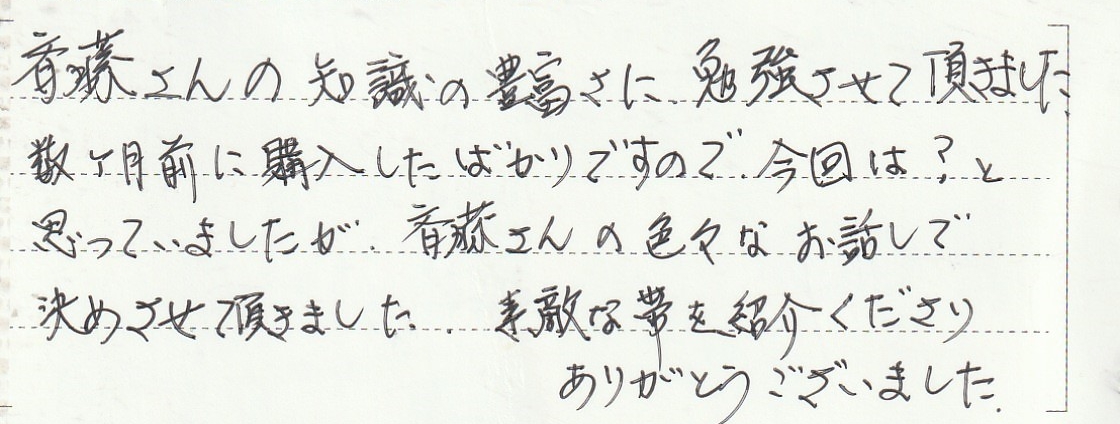 斉藤さんの知識の豊富さに、勉強させて頂きました
数ヶ月前に購入したばかりですので、今回は？と
思っていましたが、斉藤さんの色々なお話しで
決めさせて頂きました。素敵な帯を紹介くださり
ありがとうございました。